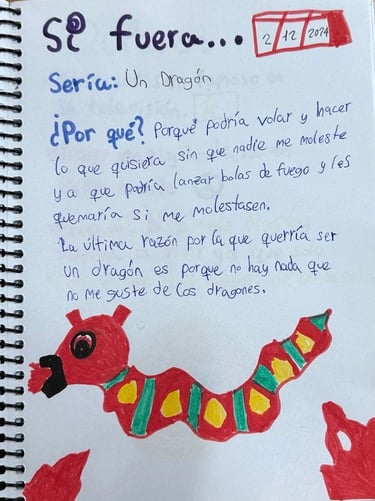 Si fuera...
2 12 2024
Sería: Un Dragón
¿Por qué? Porqué podría volar y hacer
lo que quisiera sin que nadie me moleste
y a que podría lanzar bolas de fuego y les
quemaría si me molestasen.
La última razón por la que querría ser
un dragón es porque no hay nada que
no me guste de los dragones.